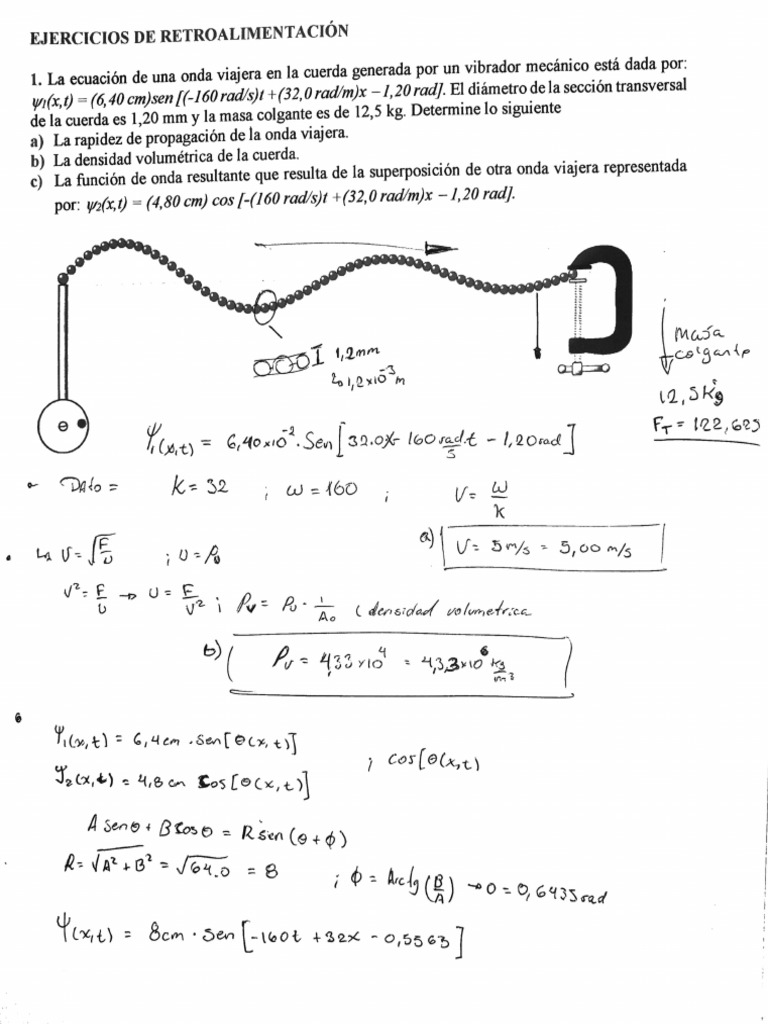 EJERCICIOS DE RETROALIMENTACIÓN
1. La ecuación de una onda viajera en la cuerda generada por un vibrador mecánico está dada por:
ψ1(x,t) = (6,40 cm)sen [(-160 rad/s)t +(32,0 rad/m)x – 1,20 rad]. El diámetro de la sección transversal
de la cuerda es 1,20 mm y la masa colgante es de 12,5 kg. Determine lo siguiente
a) La rapidez de propagación de la onda viajera.
b) La densidad volumétrica de la cuerda.
c) La función de onda resultante que resulta de la superposición de otra onda viajera representada
por: ψ2(x,t) = (4,80 cm) cos [-(160 rad/s)t +(32,0 rad/m)x – 1,20 rad].
Masa
colgante
1,2mm
1,2x10⁻³ m
12,5Kg
F_T = 122,625
Ψ₁(x,t) = 6,40x10⁻². Sen[32.0x – 160 rad/s.t – 1,20rad]
Dato = K = 32 ; ω = 160 ; V = ω/k
a) V = 5 m/s = 5,00 m/s
La U = √(F/U) ; U = ρ₀
V² = F/U → U = F/V² ; ρv = ρu · 1/A₀ (densidad volumetrica
b) ρv = 4,33 x10⁴ = 43,3x10⁶ kg/m³
Ψ₁(x,t) = 6,4cm .sen[θ(x,t)]
; cos[θ(x,t)
Ψ₂(x,t) = 4,8 cm Cos[θ(x,t)]
A senθ + B cosθ = R sen(θ+ϕ)
R = √A² + B² = √64.0 = 8 ; ϕ = Arctg(B/A) → 0 = 0,6435rad
Ψ(x,t) = 8cm · Sen[-160t + 32x – 0,5563]